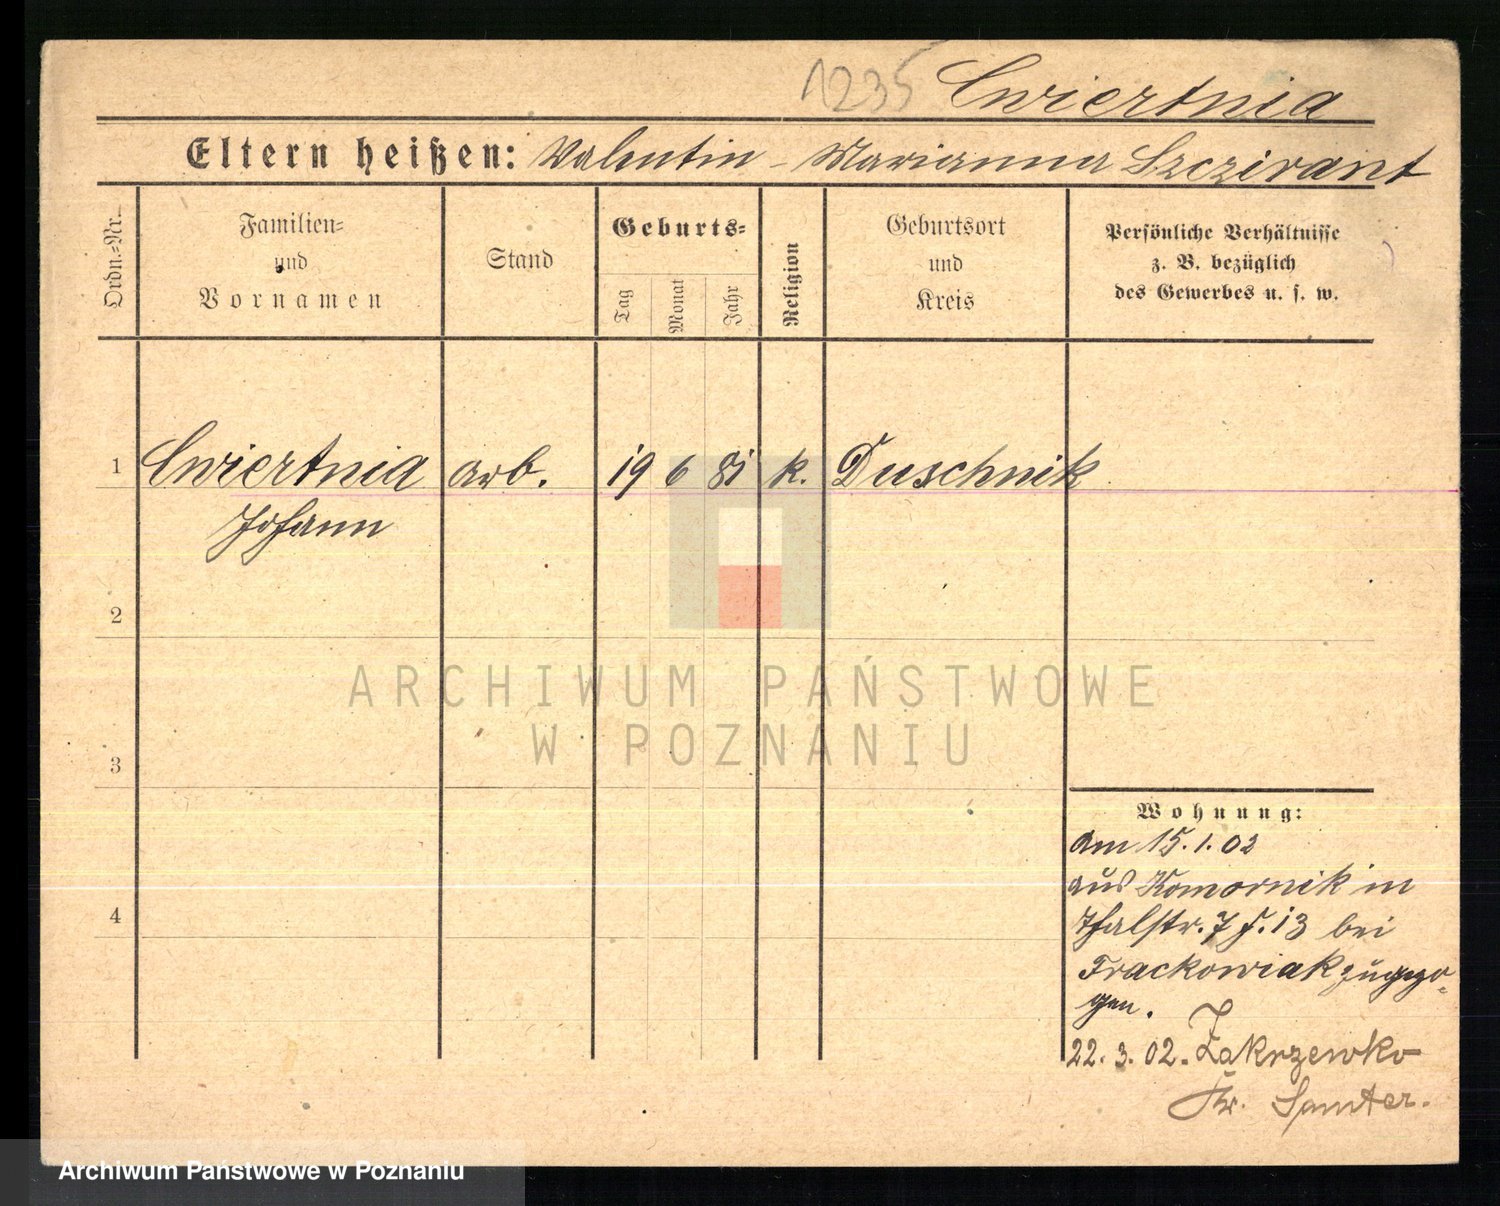 1235 Cwiertnia
Eltern heißen: Valentin - Marianna Szczirant
Ordn.-Nr.
Familien-
und
Vornamen
Stand
Geburts-
Tag
Monat
Jahr
Religion
Geburtsort
und
Kreis
Persönliche Verhältnisse
z. B. bezüglich
des Gewerbes u. s. w.
1 Cwiertnia arb. 19 6 81 k. Duschnik
Johann
2
ARCHIWUM PAŃSTWOWE
W POZNANIU
3
Wohnung:
am 15.1.02
aus Komornik in
Thalstr. 7 f. 13 bei
Frackowiak zugezo-
gen.
4
22.3.02. Zakrzewko
Kr. Samter.
Archiwum Państwowe w Poznaniu